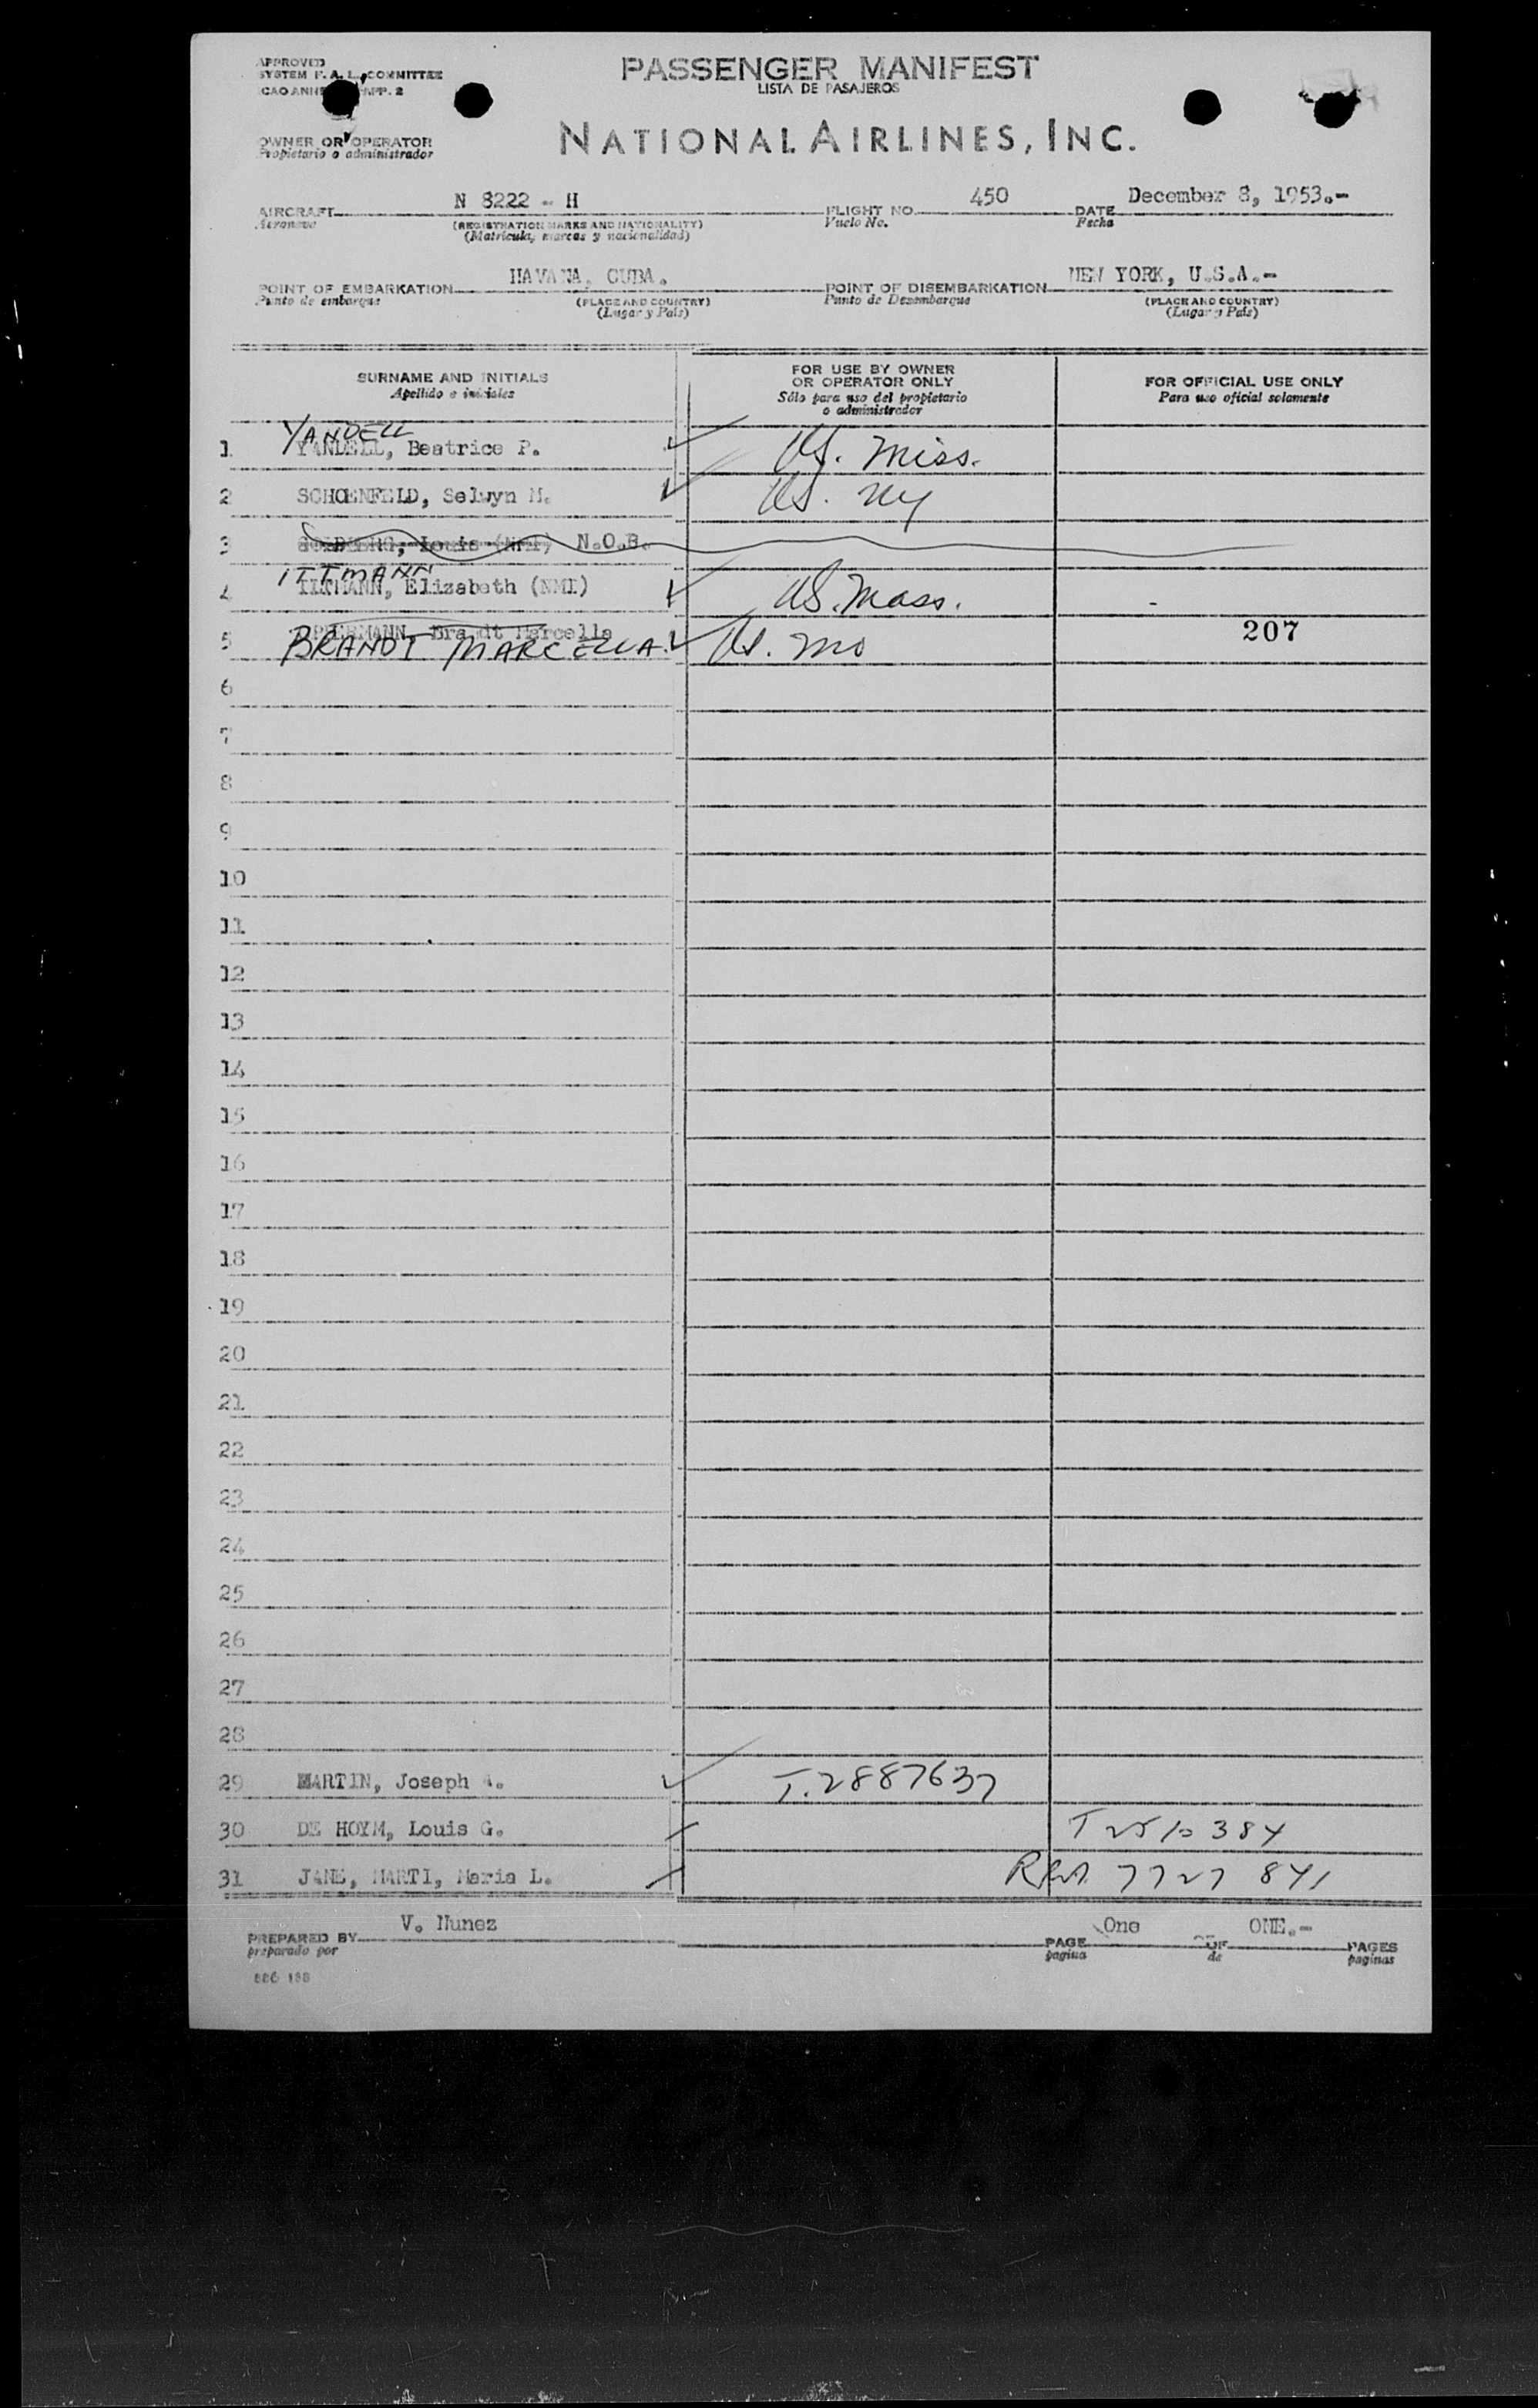 APPROVED
SYSTEM F. A. L. COMMITTEE
CAO APP. 2
PASSENGER MANIFEST
LISTA DE PASAJEROS
OWNER OR OPERATOR
Propietario o administrador
NATIONAL AIRLINES, INC.
AIRCRAFT N 8222 - H FLIGHT NO. 450 DATE December 8, 1953.-
Aeronave (REGISTRATION MARKS AND NATIONALITY) Vuelo No. Fecha
(Matricula, marcas y nacionalidad)
POINT OF EMBARKATION HAVANA, CUBA. POINT OF DISEMBARKATION NEW YORK, U.S.A.-
Punto de embarque (PLACE AND COUNTRY) Punto de Desembarque (PLACE AND COUNTRY)
(Lugar y País) (Lugar y País)
SURNAME AND INITIALS FOR USE BY OWNER OR OPERATOR ONLY FOR OFFICIAL USE ONLY
Apellido e iniciales Sólo para uso del propietario o administrador Para uso oficial solamente
YANDELL
1 YANDELL, Beatrice P. US. Miss.
2 SCHOENFELD, Selwyn M. US. NY
3 Louis N.O.B.
ITTMANN
4 Elizabeth (NMI) US. Mass.
5 Brandt Marcella 207
BRANDT MARCELLA US. Mo
6
7
8
9
10
11
12
13
14
15
16
17
18
19
20
21
22
23
24
25
26
27
28
29 MARTIN, Joseph T.2887637
30 DE HOYM, Louis G. T 2510384
31 JANE, MARTI, Maria L. 7727 841
PREPARED BY V. Nunez PAGE One OF ONE.- PAGES
preparado por pagina de paginas